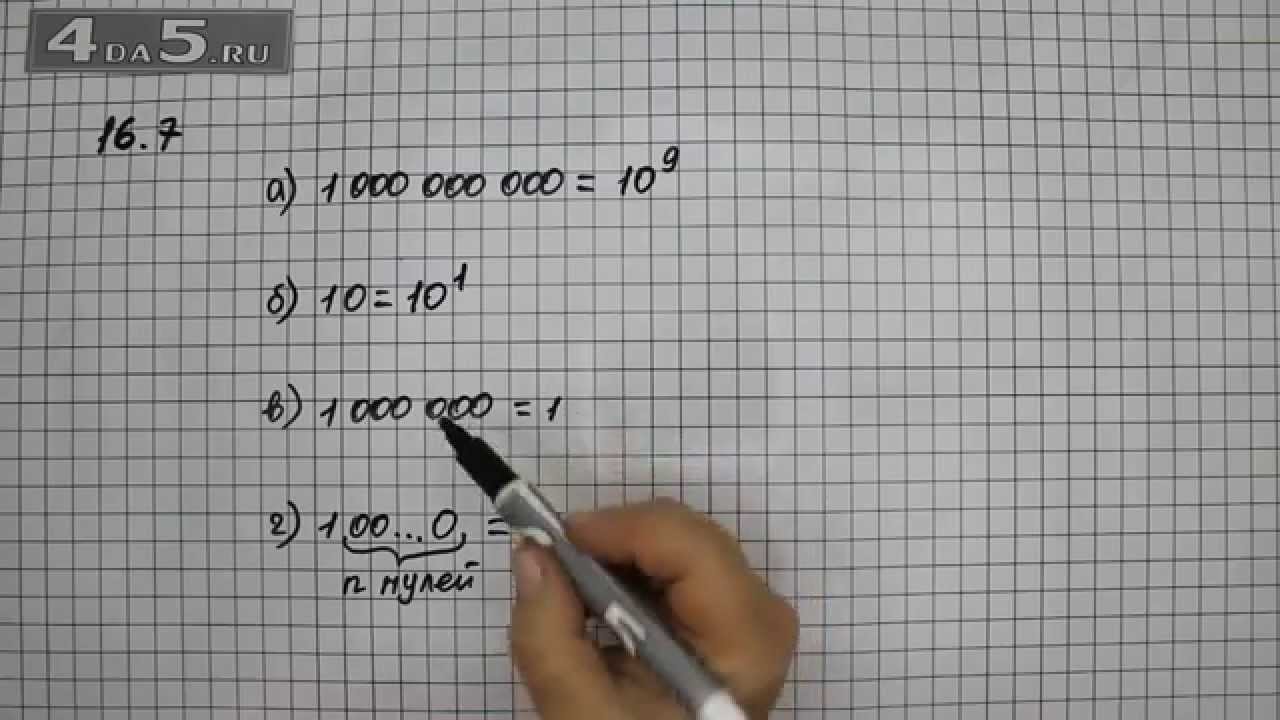 4DA5.RU
16.7
а) 1 000 000 000 = 10⁹
б) 10 = 10¹
в) 1 000 000 = 1
г) 1 00...0 =
n нулей